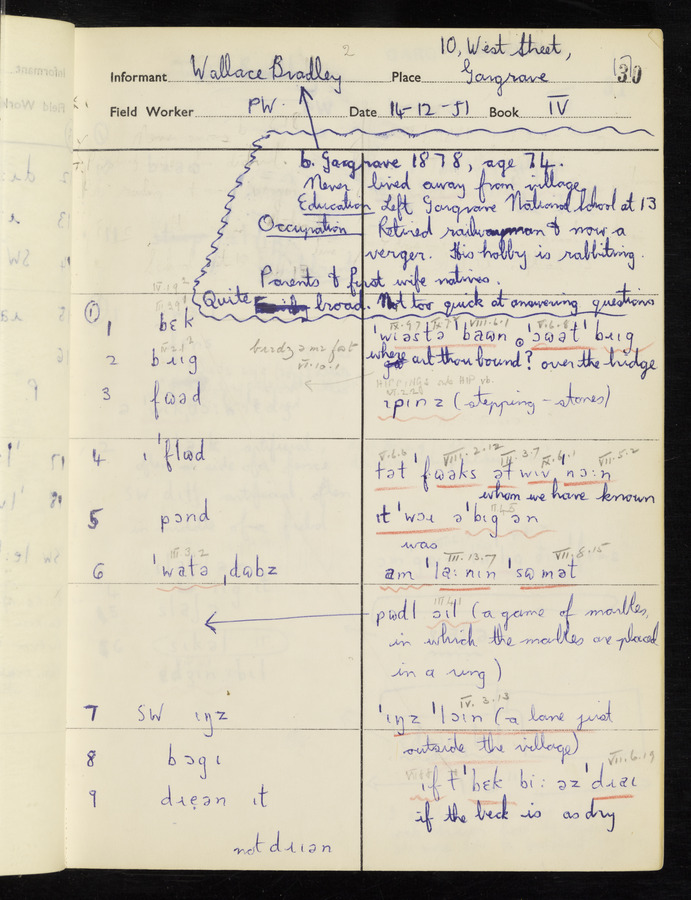 2
10, West Street,
Informant Wallace Bradley Place Gargrave
[3]0
Field Worker PW. Date 14-12-51 Book IV
b. Gargrave 1878, age 74.
Never lived away from village
Education Left Gargrave National School at 13
Occupation Retired railwayman & now a
verger. His hobby is rabbiting.
Parents & first wife natives.
Quite broad. Not too quick at answering questions
① 1 bɛk
'wiəstə 'bawn
2 bɹig
where art thou bound? over the bridge
3 fɷəd
ɩpɩnz (stepping-stones)
4 'flɷd
whom we have known
5 pɔnd
it 'wɔɹ ə 'bɩg ən
was
6 'watə ˌdɷbz
am 'la:nɩn 'sɷmət
pɷdl ɔil (a game of marbles,
in which the marbles are placed
in a ring)
7 SW ɩŋz
'ɩŋz 'lɔɩn (a lane just
outside the village)
8 bɔgɩ
9 dɹɛən ɩt
ɩf t 'bɛk bi: əz 'dɹaɩ
if the beck is as dry
not dɹɩən